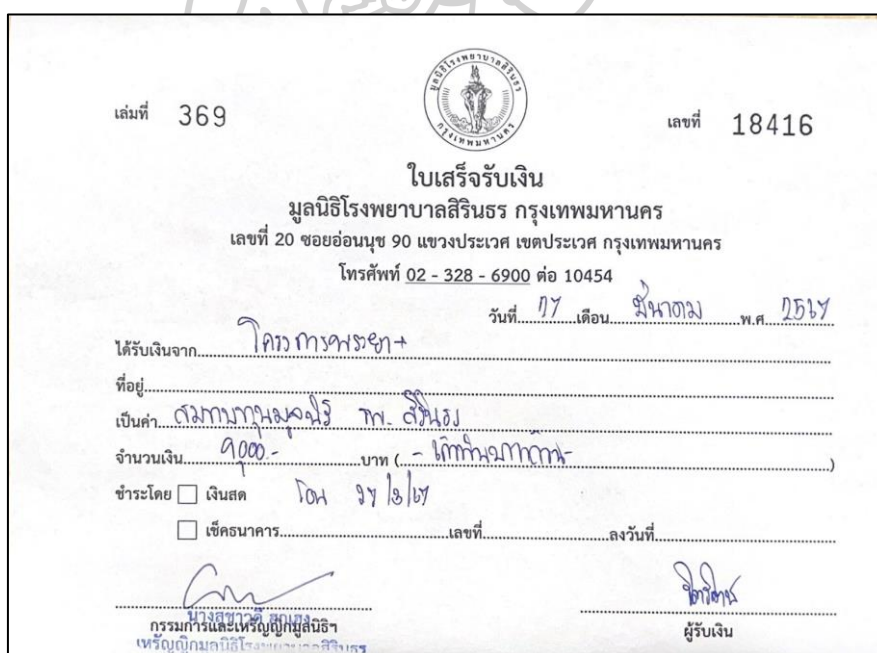 มูลนิธิโรงพยาบาลสิรินธร
กรุงเทพมหานคร
เล่มที่ 369
เลขที่ 18416
ใบเสร็จรับเงิน
มูลนิธิโรงพยาบาลสิรินธร กรุงเทพมหานคร
เลขที่ 20 ซอยอ่อนนุช 90 แขวงประเวศ เขตประเวศ กรุงเทพมหานคร
โทรศัพท์ 02 - 328 - 6900 ต่อ 10454
วันที่ 27 เดือน มีนาคม พ.ศ. 2567
ได้รับเงินจาก
ที่อยู่
เป็นค่า สมทบทุนมูลนิธิ รพ. สิรินธร
จำนวนเงิน 9,000.- บาท ( - เก้าพันบาทถ้วน- )
ชำระโดย เงินสด โอน 27/3/67
เช็คธนาคาร เลขที่ ลงวันที่
นางสุชาวดี
กรรมการและเหรัญญิกมูลนิธิฯ
เหรัญญิกมูลนิธิโรงพยาบาลสิรินธร
ผู้รับเงิน